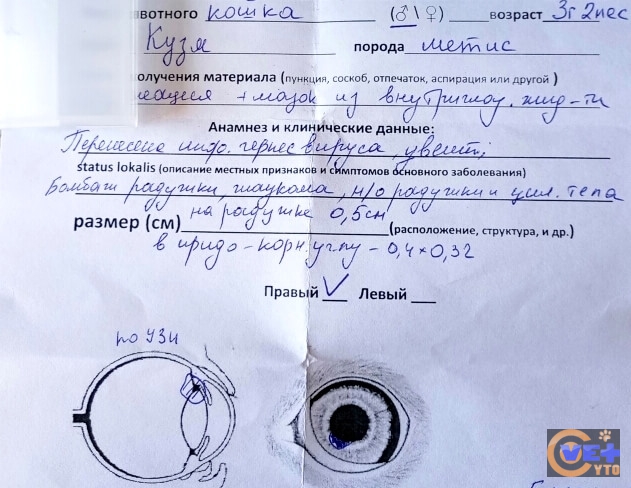 ивотного кошка (♂\♀) возраст 3г 2мес
Кузя порода метис
олучения материала (пункция, соскоб, отпечаток, аспирация или другой )
+ мазок из внутриглазн. жид-ти
Анамнез и клинические данные:
Перенесена инф. герпес вируса, увеит;
status lokalis (описание местных признаков и симптомов основного заболевания)
Бомбаж радужки, глаукома, н/о радужки и цил. тела
на радужке 0,5см
размер (см) (расположение, структура, и др.)
в иридо-корн. углу - 0,4×0,32
Правый V Левый
по УЗИ
VET
CYTO